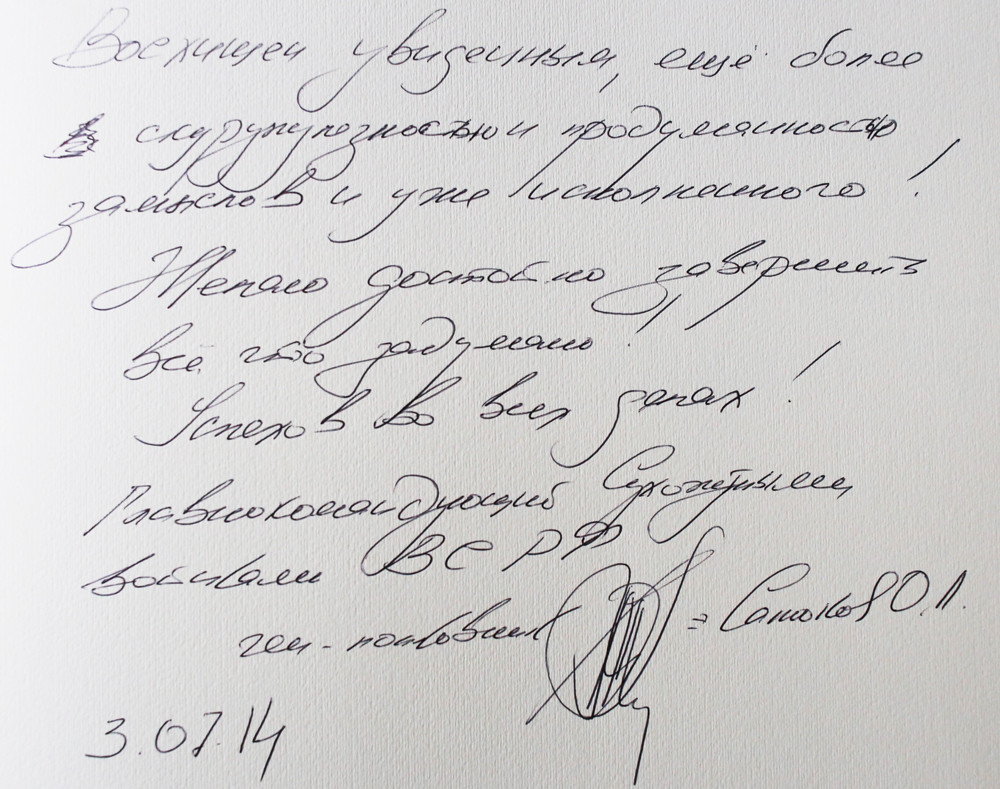 Восхищен увиденным, ещё более
скурпулезностью и продуманностью
замыслов и уже исполненного!
Желаю достойно завершить
всё что задумано!
Успехов во всех делах!
Главнокомандующий Сухопутными
войсками ВС РФ
ген-полковник = Салюков О.Л.
3.07.14